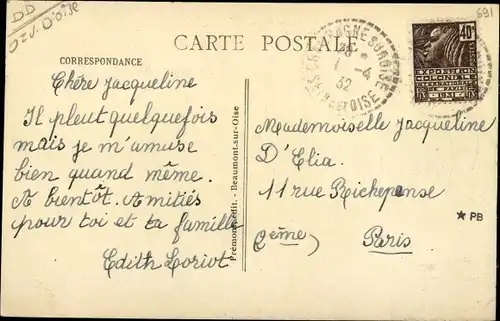 DD
D=V. D'OISE
691
CARTE POSTALE
CORRESPONDANCE
Chère Jacqueline
Il pleut quelquefois
mais je m'amuse
bien quand même.
A bientôt. Amitiés
pour toi et ta famille
Edith Loriot
Frémont, édit. - Beaumont-sur-Oise
SUR OISE
1 -4
32
SEINE ET OISE
40c
EXPOSITION
COLONIALE
INTERNATIONALE
PARIS
1931
Mademoiselle Jacqueline
D'Elia
11 rue Richepanse
(8ème)
Paris
* PB